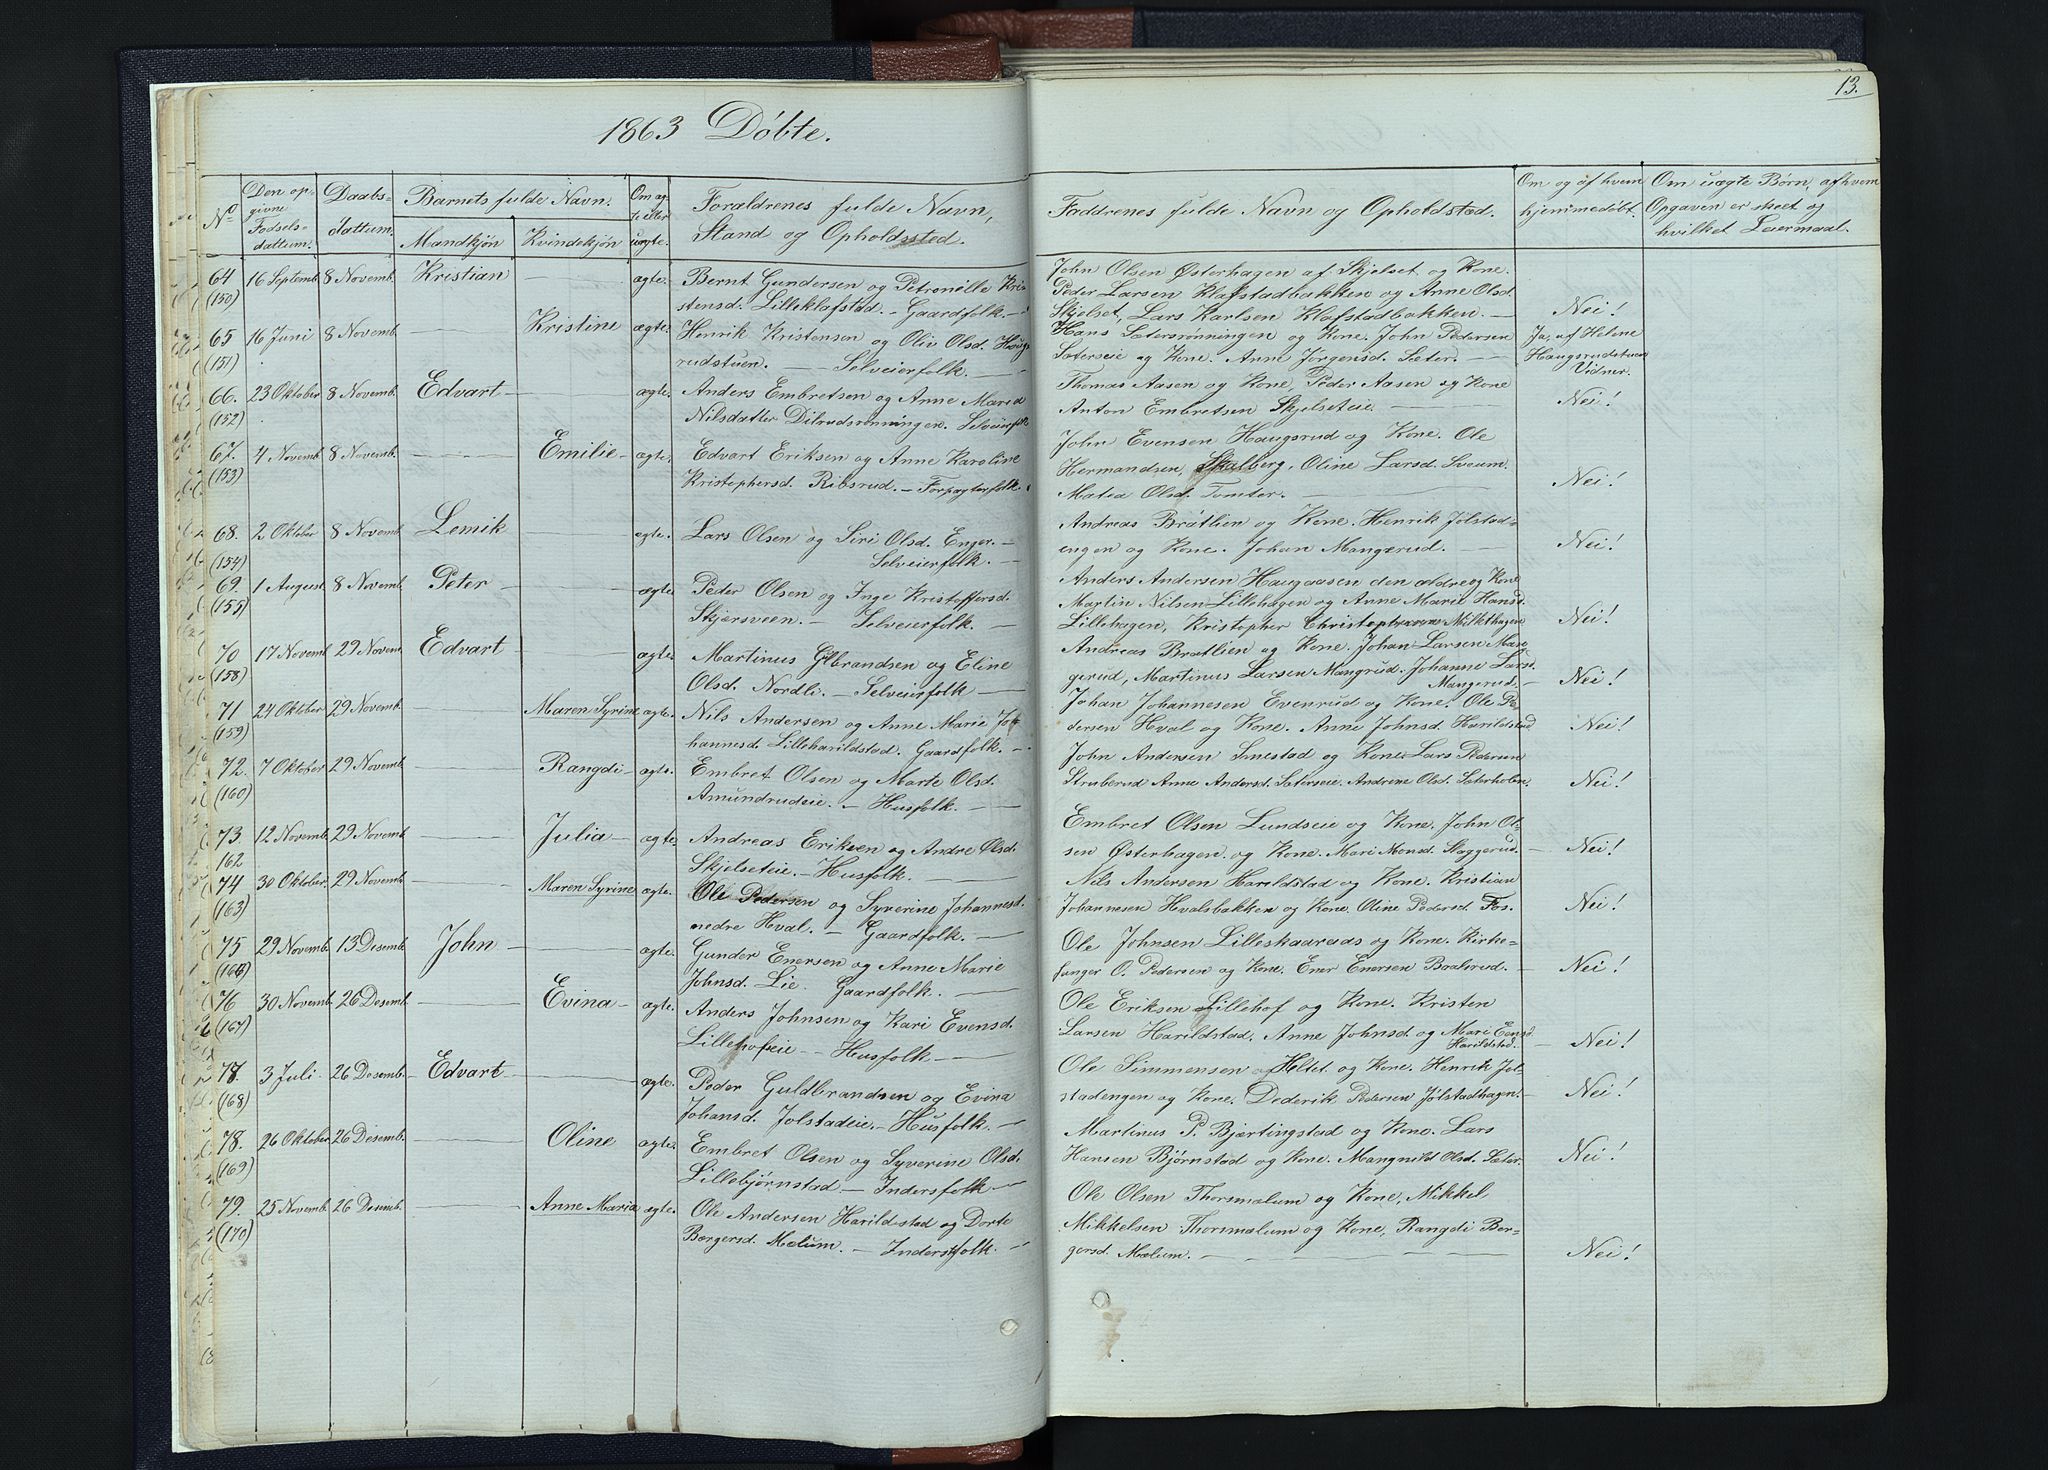 1863 Døbte.
No
Den op-
givne
Fødsels-
dattum.
Daabs-
dattum.
Barnets fulde Navn.
Mandkjøn
Kvindekjøn
Om æg-
te eller
uægte.
Forældrenes fulde Navn,
Stand og Opholdssted.
64 16 Septemb. 8 Novemb. Kristian ægte. Bernt Gundersen og Petronelle Kri-
(150) stensd. Lilleklafstad. - Gaardfolk. -
65 16 Juni 8 Novemb. Kristine ægte. Henrik Kristensen og Oliv Olsd. Haugs-
(151) rudstuen. - Selveierfolk. -
66. 23 Oktober 8 Novemb. Edvart - ægte. Anders Embretsen og Anne Maria
(152) Nilsdatter Dilrudsrønningen. Selveierfolk
67. 4 Novemb. 8 Novemb. Emilie - ægte. Edvart Eriksen og Anne Karoline
(153) Kristophersd. Ribsrud. - Forpagterfolk.
68. 2 Oktober 8 Novemb. Lemik ægte. Lars Olsen og Siri Olsd. Enger. -
(154) Selveierfolk. -
69. 1 August. 8 Novemb. Peter - ægte. Peder Olsen og Inge Kristoffersd.
(155) Skjærsveen. - Selveierfolk. -
70 17 Novemb. 29 Novem. Edvart - ægte. Martinus Glbrandsen og Eline
(158) Olsd. Nordli. - Selveierfolk -
71 24 Oktober 29 Novemb. Maren Syrine ægte. Nils Andersen og Anne Marie Jo-
(159) hannesd. Lilleharildstad. Gaardfolk. -
72. 7 Oktober 29 Novemb. Rangdi - ægte. Embret Olsen og Marte Olsd.
(160) Amundrudeie. - Husfolk. -
73. 12 Novemb. 29 Novemb. Julia - ægte. Andreas Eriksen og Andre Olsd.
162 Skjelseteie. - Husfolk. -
74 30 Oktober. 29 Novemb. Maren Syrine ægte. Ole Pedersen og Syverine Johannesd.
(163) nedre Hval. - Gaardfolk. -
75 29 Novemb. 13 Desemb. John - ægte. Gunder Enersen og Anne Marie
(166) Johnsd. Lie. Gaardfolk. -
76 30 Novemb. 26 Desemb. Evina - ægte. Anders Johnsen og Kari Evensd.
(167) Lillehofeie - Husfolk -
77. 3 Juli. 26 Desemb. Edvart - ægte. Peder Guldbrandsen og Evina
(168) Johansd. Jolstadeie. - Husfolk. -
78. 26 Oktober. 26 Desemb. Oline ægte. Embret Olsen og Syverine Olsd.
(169) Lillebjørnstad - Indersfolk -
79. 25 Novemb. 26 Desemb. Anne Maria ægte. Ole Andersen Harildstad og Dorte
(170) Børgersd. Mælum. - Inderstfolk. -
13.
Faddrenes fulde Navn og Opholdstad.
Om og af hvem
hjemmedøbt.
Om uægte Børn, af hvem
Opgaven er skeet og
hvilket Leiermaal.
John Olsen Østerhagen af Skjelset og Kone.
Peder Larsen Klafstadbakken og Anne Olsd.
Skjelset, Lars Karlsen Klafstadbakken. - Nei!
Hans Sætersrønningen og Kone. John Pedersen Ja, af Helene
Sæterseie og Kone. Anne Jørgensd. Sæter. - Haugsrudstuen
Vidner.
Thomas Aasen og Kone, Peder Aasen og Kone
Anton Embretsen Skjelseteie - Nei!
John Evensen Haugsrud og Kone. Ole
Hermandsen, Skalberg, Oline Larsd. Sveum. Nei!
Matea Olsd. Tomter. -
Andreas Bråtlien og Kone. Henrik Jølstad-
engen og Kone. Johan Mangerud. - Nei!
Anders Andersen Haugaasen den ældre og Kone
Martin Nilsen Lillehagen og Anne Marie Hansd.
Lillehagen, Kristopher Nei!
Andreas Bratlien og Kone. Johan Larsen Man-
gerud, Martinus Larsen Mangrud. Johanne Larsd.
Mangerud. - Nei!
Johan Johannesen Evenrud og Kone. Ole Pe-
dersen Hval og Kone. Anne Johnsd. Harildstad Nei!
John Andersen Smestad og Kone Lars Pedersen
Struberud Anne Andersd. Sæterseie. Andrine Olsd. Sæterholen. Nei!
Embret Olsen Lundseie og Kone. John Ol-
sen Østerhagen og Kone. Mari Monsd. Staggerud. - Nei!
Nils Andersen Harildstad og Kone. Kristian
Johannesen Hvalsbakken og Kone. Oline Pedersd. Fos. Nei!
Ole Johnsen Lilleskaaraas og Kone. Kirke-
sanger O. Pedersen og Kone. Ener Enersen Braaterud. - Nei!
Ole Eriksen Lillehof og Kone. Kristen
Larsen Harildstad, Anne Johnsd. og Mari Eensd.
Harildstad. - Nei!
Ole Simmensen af Heltet og Kone. Henrik Jol-
stadengen og Kone. Dederik Pedersen Jølstadhagen. - Nei!
Martinus P. Bjærtingstad og Kone. Lars
Hansen Bjørnstad og Kone. Mangnild Olsd. Sæter. Nei!
Ole Olsen Thorsmælum og Kone, Mikkel
Mikkelsen Thorsmælum og Kone, Rangdi Bør-
gersd. Mælum. - Nei!